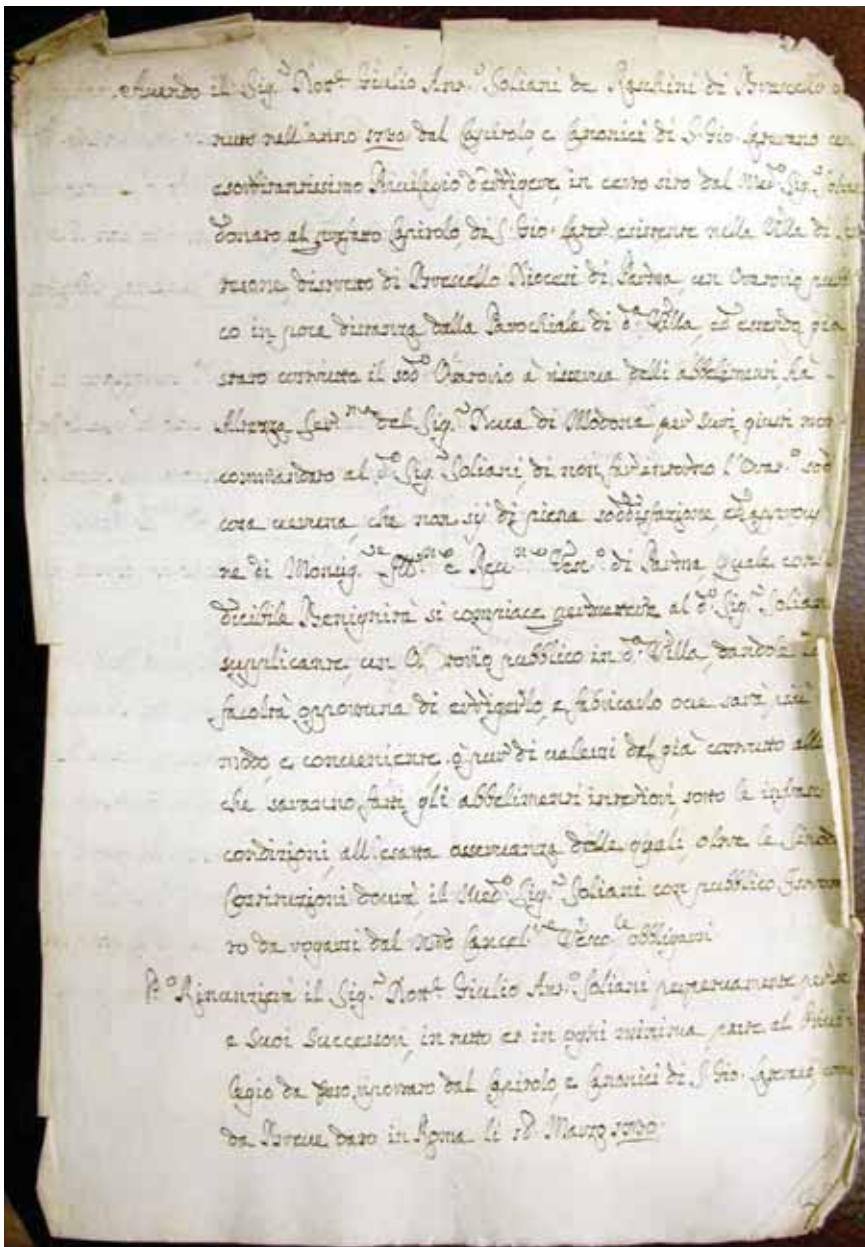 Avendo il Sig.r Dott.r Giulio Ant.o Soliani da Raschini di Brescello o
nuto nell'anno 1730 dal Capitolo, e Canonici di S. Gio. Laterano un
esorbitantissimo Privilegio d'erriggere, in certo sito dal Med.o Sig.r Solian
donato al prefato Capitolo di S. Gio. Later. esistente nella Villa di
distretto di Brescello Diocesi di Parma, un Oratorio publi
co in poca distanza dalla Parochiale di d.a Villa, ed essendo già
stato costrutto il sod.o Oratorio à riserva delli abbelimenti, hà
Altezza Ser.ma del Sig.r Duca di Modona per suoi giusti mo
commandato al d.o Sig.r Soliani, di non far intorno l'Orat.o sod
cosa veruna, che non sij di piena soddisfazione, ed approvaz
ne di Monsig.re Ill.mo e Rev.mo Vesc.o di Parma, Quale con
dicibile Benignità si compiace permettere al d.o Sig.r Soliani
supplicante, un Oratorio pubblico in d.a Villa, dandole la
facoltà opportuna di erriggerlo, e fabricarlo ove sarà più
modo, e conveniente, ò pur di valersi del già costrutto allo
che saranno fatti gli abbelimenti interiori, sotto le infras
condizioni, all'esatta osservanza delle quali, oltre le Sinod
Costituzioni dovrà il Med.o Sig.r Soliani con pubblico Istrum
to da rogarsi dal Cancel.re Vesco.le obbligarsi
P.o Rinunzierà il Sig.r Dott.r Giulio Ant.o Soliani perpetuamente per se
e Suoi Successori, in tutto et in ogni minima parte al Privi
legio da esso riportato dal Capitolo, e Canonici di S. Gio. Laterano, come
da Breve dato in Roma li 18 Marzo 1730